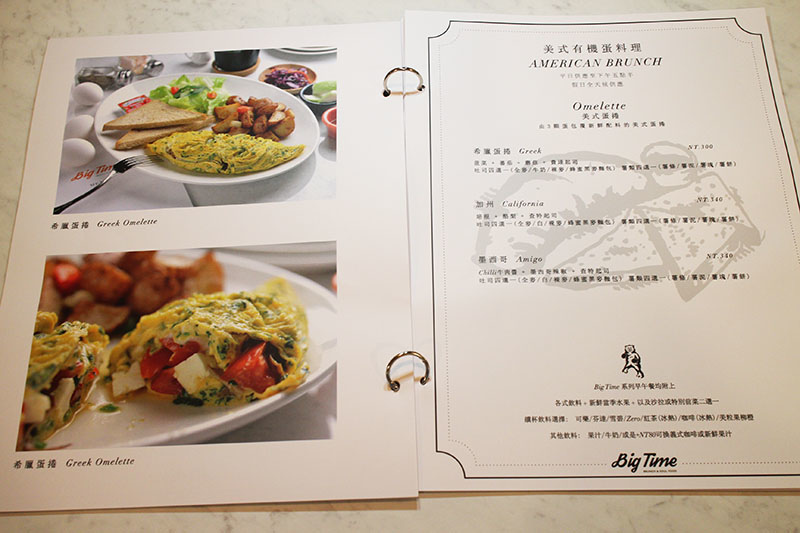 Big Time
希臘蛋捲 Greek Omelette
希臘蛋捲 Greek Omelette
美式有機蛋料理
AMERICAN BRUNCH
平日供應至下午五點半
假日全天候供應
Omelette
美式蛋捲
由3顆蛋包覆新鮮配料的美式蛋捲
希臘蛋捲 Greek NT.300
菠菜。番茄。蘑菇。費達起司
吐司四選一(全麥/牛奶/裸麥/蜂蜜黑麥麵包) 薯類四選一(薯條/薯泥/薯塊/薯餅)
加州 California NT.340
培根。酪梨。查特起司
吐司四選一(全麥/白/裸麥/蜂蜜黑麥麵包) 薯類四選一(薯條/薯泥/薯塊/薯餅)
墨西哥 Amigo NT.340
Chili牛肉醬。墨西哥辣椒。查特起司
吐司四選一(全麥/白/裸麥/蜂蜜黑麥麵包) 薯類四選一(薯條/薯泥/薯塊/薯餅)
Big Time 系列早午餐均附上
各式飲料。新鮮當季水果。以及沙拉或特別前菜二選一
續杯飲料選擇: 可樂/芬達/雪碧/Zero/紅茶(冰熱)/咖啡(冰熱)/美粒果柳橙
其他飲料: 果汁/牛奶/或是+NT80可換義式咖啡或新鮮果汁
Big Time
BRUNCH & SOUL FOOD